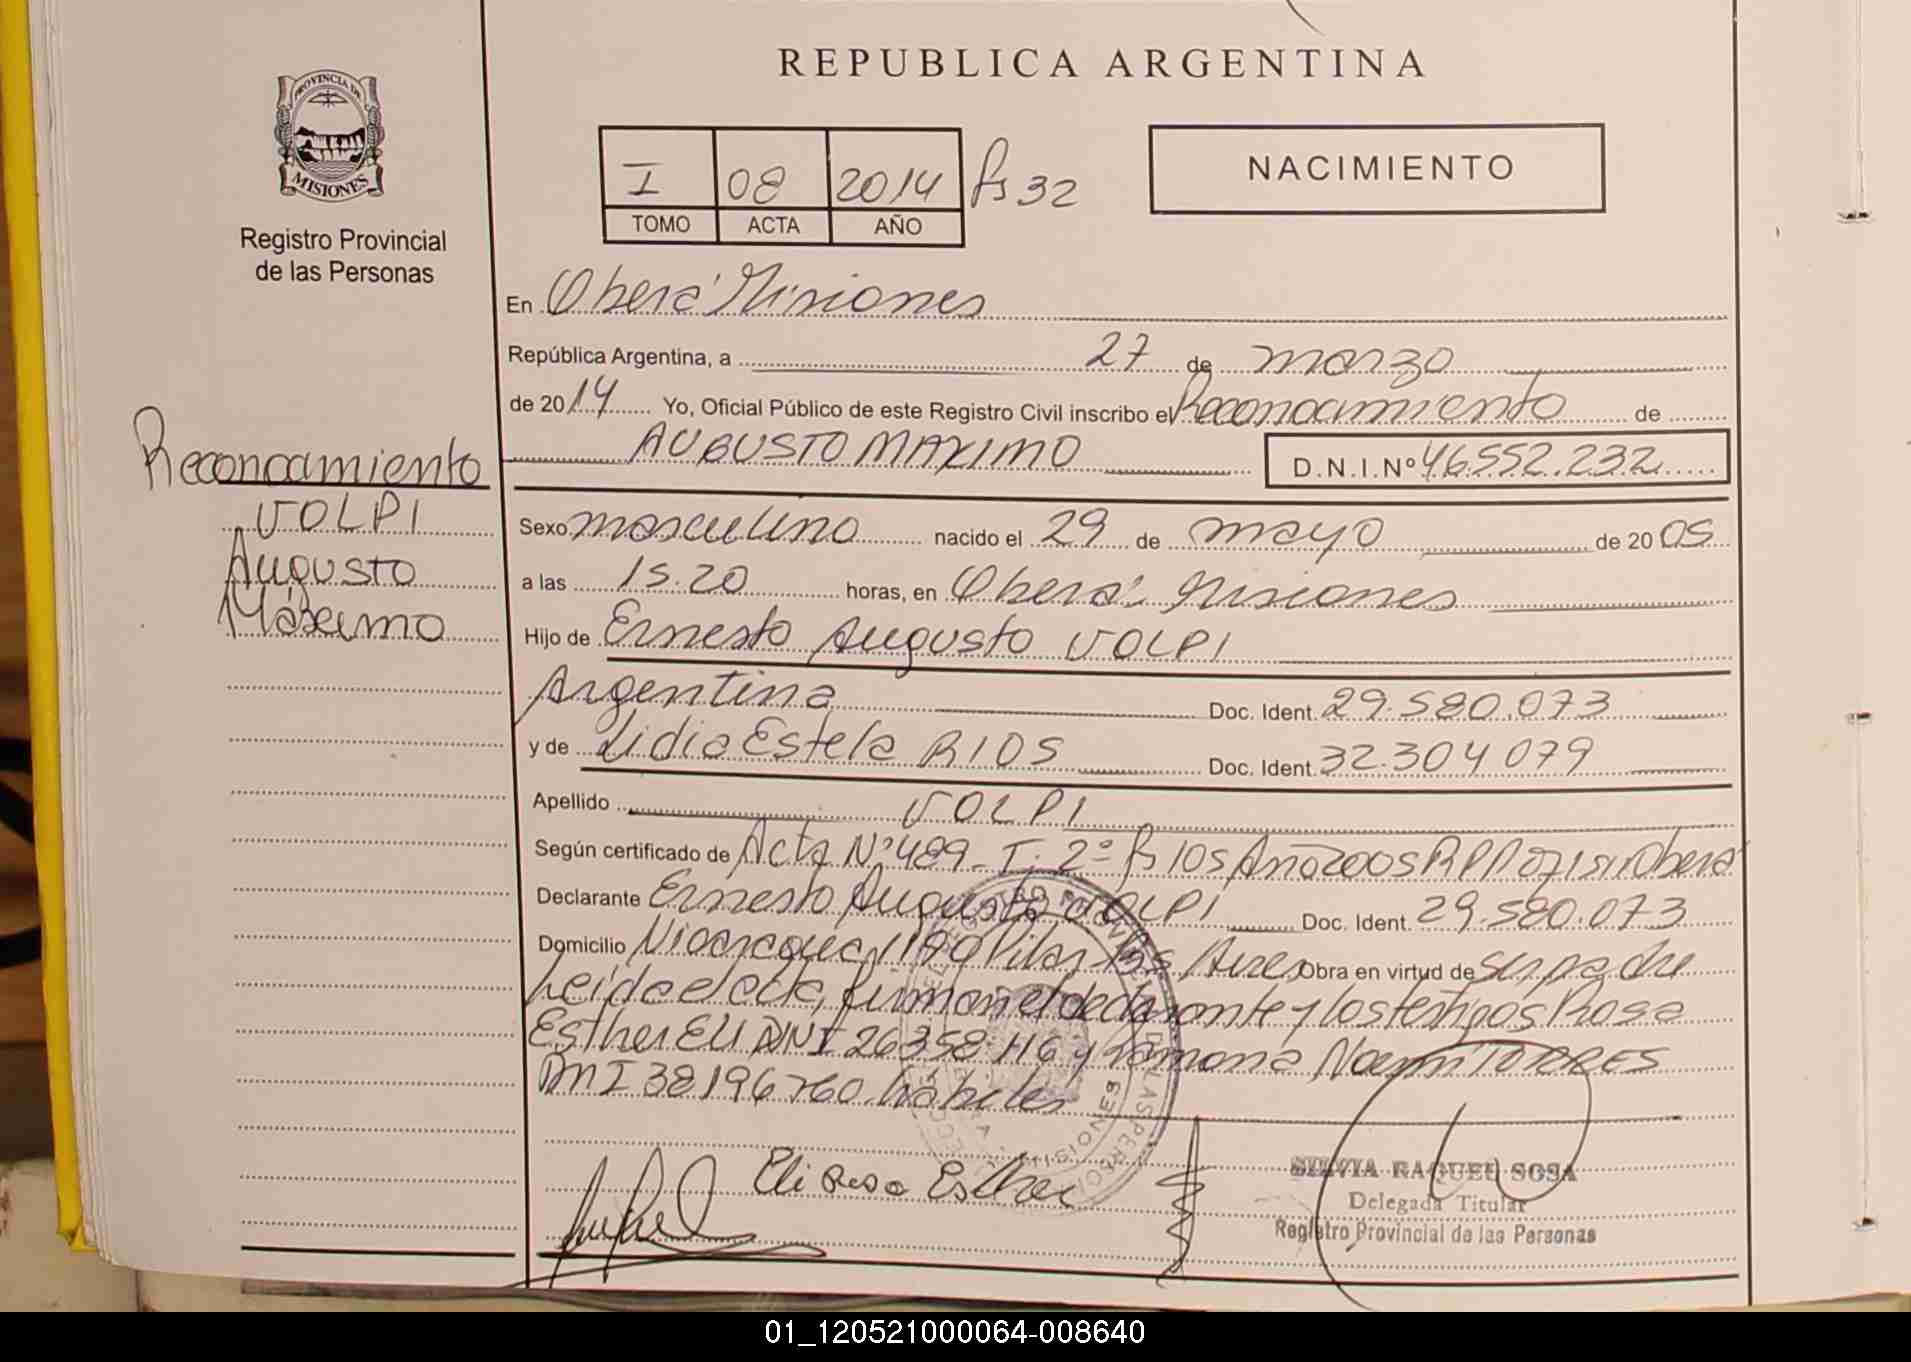 REPUBLICA ARGENTINA
PROVINCIA DE
MISIONES
Registro Provincial
de las Personas
I 08 2014 Fs 32
TOMO ACTA AÑO
NACIMIENTO
En Oberá Misiones
República Argentina, a 27 de marzo
de 2014 Yo, Oficial Público de este Registro Civil inscribo el Reconocimiento de
AUGUSTO MAXIMO D.N.I.Nº 46.552.232
Reconocimiento
VOLPI
Augusto
Máximo
Sexo masculino nacido el 29 de mayo de 2005
a las 15.20 horas, en Oberá Misiones
Hijo de Ernesto Augusto VOLPI
Argentina Doc. Ident. 29.580.073
y de Lidia Estela RIOS Doc. Ident. 32.304 079
Apellido VOLPI
Según certificado de Acta Nº 489 - T. 2º Fs 105 Año 2005 Oberá
Declarante Ernesto Augusto VOLPI Doc. Ident. 29.580.073
Domicilio Nicaragua Pilar Bs Aires Obra en virtud de ser padre
Leída el acta, firman el declarante y los testigos Rosa
Esther ELI DNI 26358.116 y Ramona Noemí TORRES
DNI 38196760 hábiles
Eli Rosa Esther
SILVIA RAQUEL SOSA
Delegada Titular
Registro Provincial de las Personas
01_120521000064-008640